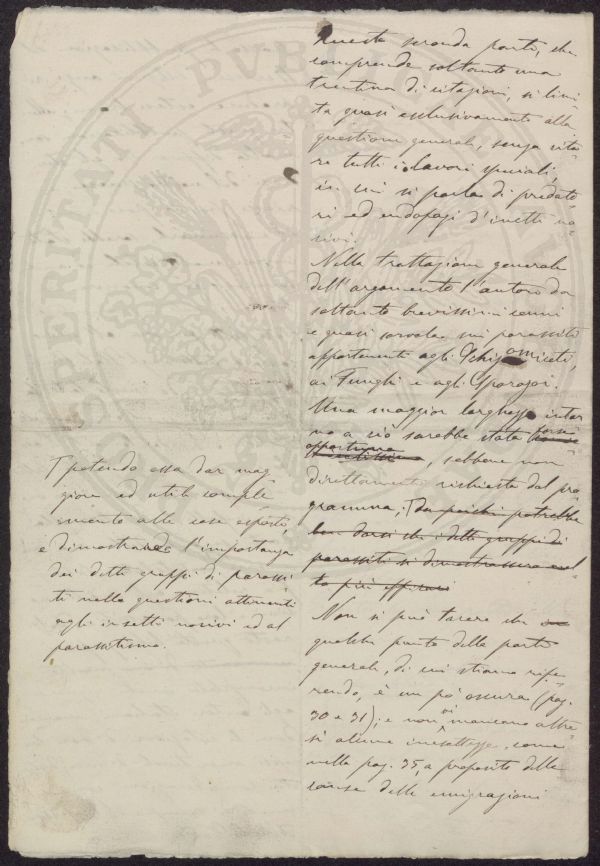 Questa seconda parte, che
comprende soltanto una
trentina di citazioni, si limi
ta quasi esclusivamente alla
questione generale, senza cita
re tutti i lavori speciali,
in cui si parla di predato
ri ed endofagi d'insetti no
civi.
Nella trattazione generale
dell'argomento l'autore da
soltanto brevissimi cenni
e quasi sorvola sui parassiti
appartenenti agli Schizomiceti,
ai Funghi e agli Sporozoi.
Una maggior larghezza intor
no a ciò sarebbe stata forse
opportuna, sebbene non
direttamente richiesta dal pro
gramma; T da poichè potrebbe
ben darsi che i detti gruppi di
parassiti si dimostrassero mol
to più efficaci
Non si può tacere che
qualche punto della parte
generale, di cui stiamo rife
rendo, è un pò oscura (pag.
30 e 31); e non vi mancano altre
sì alcune inesattezze, come
nella pag. 35, a proposito delle
cause delle emigrazioni
T potendo essa dar mag
giore ed utile comple
mento alle cose esposte,
e dimostrando l'importanza
dei detti gruppi di parassi
ti nelle questioni attinenti
agli insetti nocivi ed al
parassitismo.